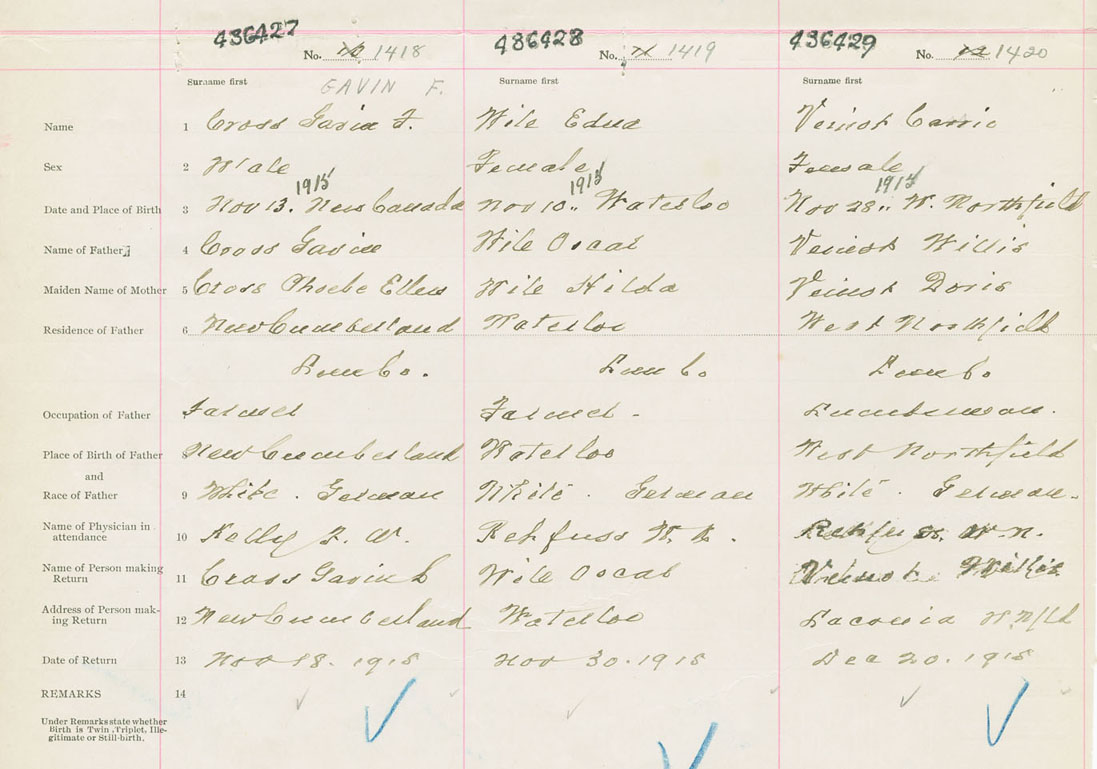 436427 436428 436429
No. 10 1418 No. 11 1419 No. 12 1420
Surname first Surname first Surname first
GAVIN F.
Name 1 Cross Gavin F. Wile Edna Veinot Carrie
Sex 2 Male Female Female
1915 1915 1915
Date and Place of Birth 3 Nov 13. New Canada Nov 10 " Waterloo Nov 28 " W. Northfield
Name of Father 4 Cross Gavin Wile Oscar Veinot Willis
Maiden Name of Mother 5 Cross Phoebe Ellen Wile Hilda Veinot Doris
Residence of Father 6 New Cumberland Waterloo West Northfield
Lun Co. Lun Co Lun Co
Occupation of Father Farmer Farmer - Lumberman.
Place of Birth of Father 8 New Cumberland Waterloo West Northfield
and
Race of Father 9 White. German White. German White. German.
Name of Physician in
attendance 10 Kelly F. W. Rehfuss W. N. Rehfuss W. N.
Name of Person making
Return 11 Cross Gavin Wile Oscar Veinot Willis
Address of Person mak-
ing Return 12 New Cumberland Waterloo Laconia W. Nfld
Date of Return 13 Nov 18. 1915 Nov 30. 1915 Dec 20. 1915
REMARKS 14
Under Remarks state whether
Birth is Twin, Triplet, Ille-
gitimate or Still-birth.